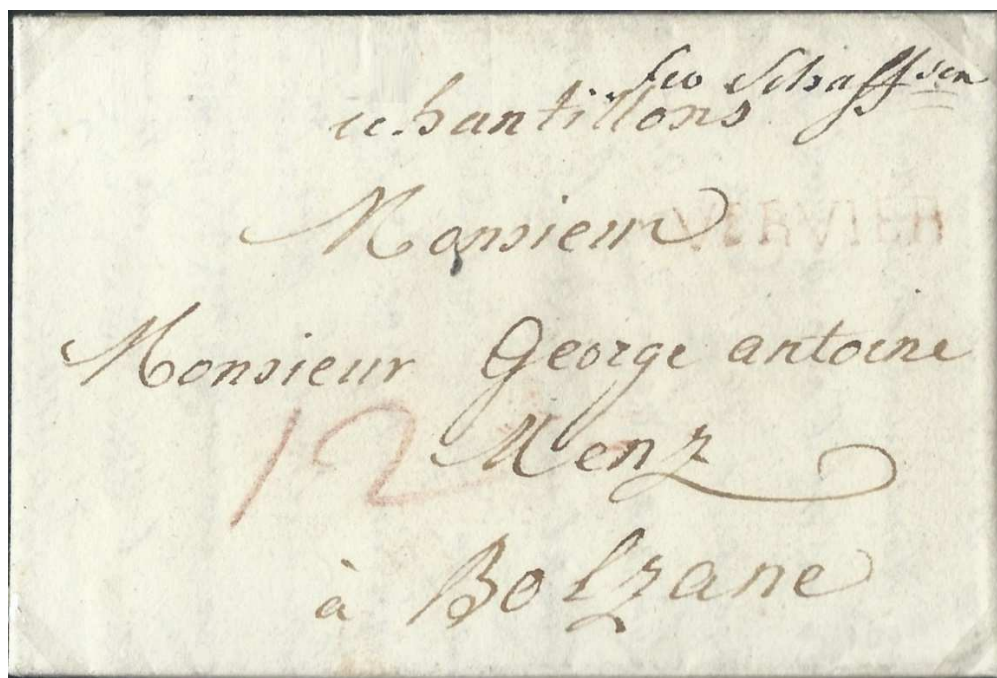 fco Schaffsen
echantillons
Monsieur
Monsieur George antoine
12
Menz
à Bolzane